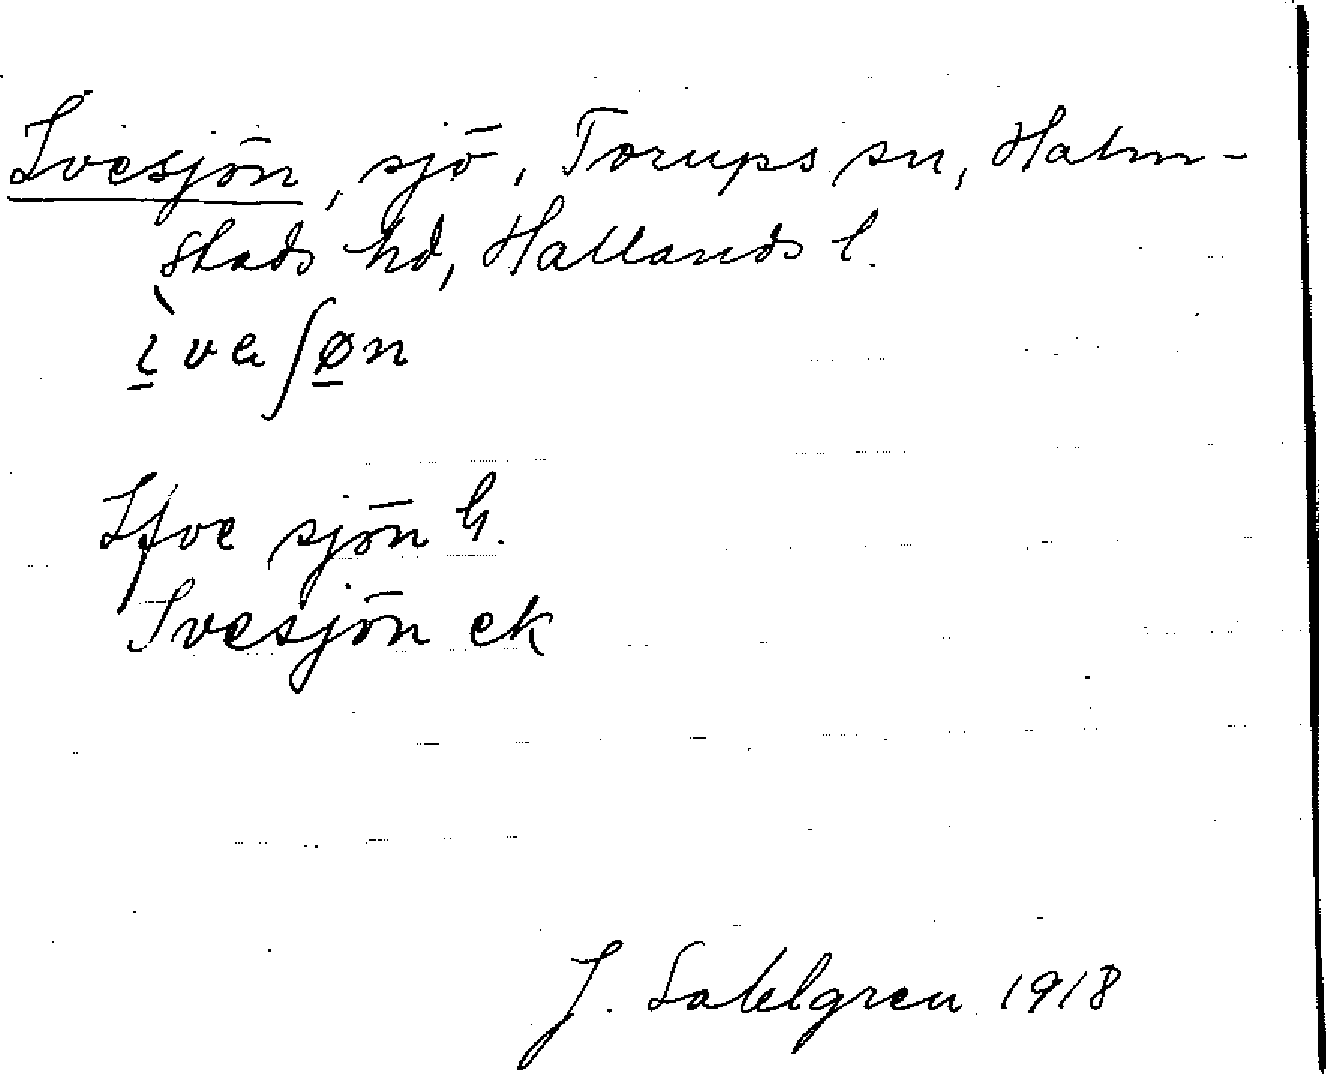 Ivesjön, sjö, Torups sn, Halm-
stads hd, Hallands l.
ìvaʃøn
Ifve sjön G.
Ivesjön ek
J. Sahlgren 1918